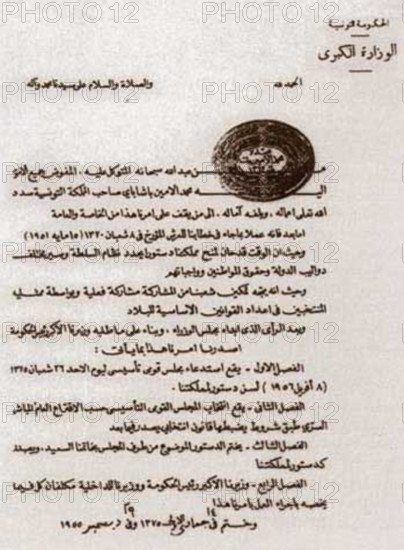 الحكومة التونسية
الوزارة الكبرى
الحمد لله والصلاة والسلام على سيدنا محمد وآله
من عبد الله سبحانه المتوكل عليه، المفوض جميع الأمور
إليه محمد الامين باشا باي صاحب المملكة التونسية سدد
الله تعلى اعماله، وبلغه آماله، الى من يقف على امرنا هذا من الخاصة والعامة
اما بعد فانه عملا بما جاء في خطابنا للعرش المؤرخ في 8 شعبان 1320 (15 مايه 1951)
وحيث ان الوقت قد حان لمنح مملكتنا دستورا يحدد نظام السلطة وسير مختلف
دواليب الدولة وحقوق المواطنين وواجباتهم
وحيث انه يتجه تمكين شعبنا من المشاركة مشاركة فعلية وبواسطة ممثليه
المنتخبين في اعداد القوانين الاساسية للبلاد
وبعد الرأي الذي ابداه مجلس الوزراء، وبناء على ما طلبه وزيرنا الاكبر رئيس الحكومة
اصدرنا امرنا هذا بما يأتي:
الفصل الاول - يقع استدعاء مجلس قومي تأسيسي ليوم الاحد 26 شعبان 1375
(8 أفريل 1956) لسن دستور لمملكتنا.
الفصل الثاني - يقع انتخاب المجلس القومي التأسيسي حسب الاقتراع العام المباشر
السري طبق شروط يضبطها قانون انتخابي يصدر فيما بعد
الفصل الثالث - يختم الدستور الموضوع من طرف المجلس بخاتمنا السعيد، ويصدر
كدستور لمملكتنا
الفصل الرابع - وزيرنا الاكبر رئيس الحكومة ووزيرنا للداخلية مكلفان كل فيما
يخصه باجراء العمل بأمرنا هذا
وختم في 14 جمادى الاولى 1375 وفي 29 دسمبر 1955